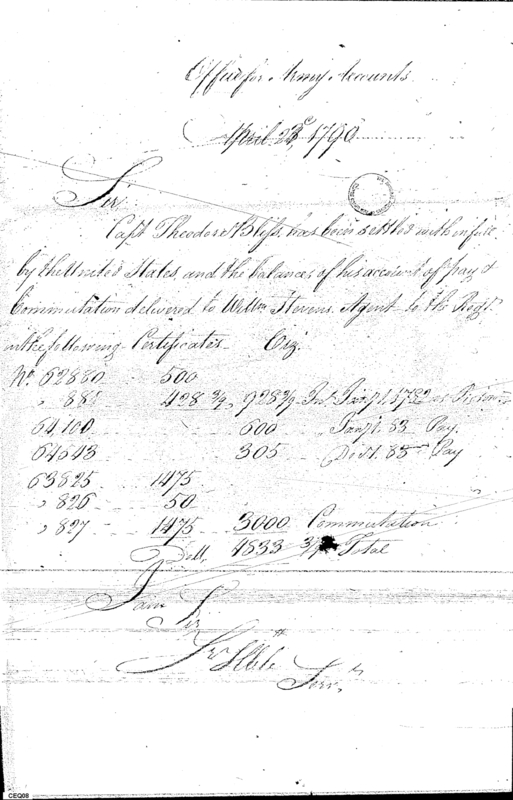 Office for Army Accounts
April 23d, 1790
Sir
Capt Theodore Bliss, has been settled with in full
by the United States, and the balance of his account of pay &
Commutation delivered to Willm Stevens Agent to the Regt
in the following Certificates Viz.
No. 62880 500
" 881 428 3/9 928 3/9 Int. Jany 1. 1782 as
64,100 600 " Jany 1. 83 Pay.
64643 305 " Pay
63825 1475
" 826 50
" 827 1475 3000 Commutation
Doll. 4833 3/9 Total
I am
Sir
Yr Hble
Servt
CEQ08